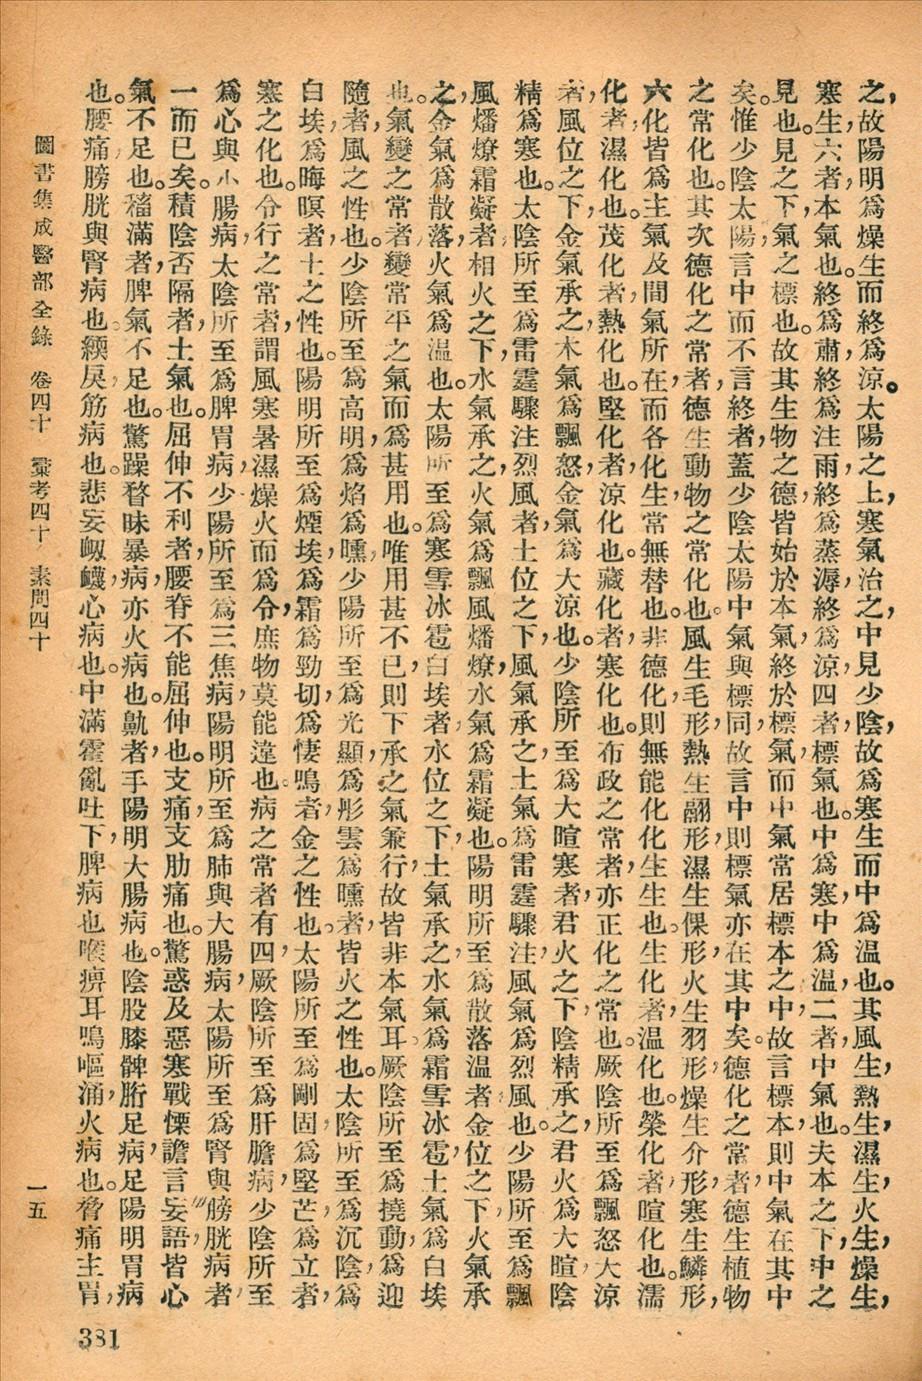 之，故陽明爲燥生而終爲涼。太陽之上，寒氣治之，中見少陰，故爲寒生而中爲溫也。其風生，熱生，濕生，火生，燥生，
寒生，六者，本氣也。終爲肅，終爲注雨，終爲蒸溽，終爲涼，四者，標氣也。中爲寒，中爲溫，二者，中氣也。夫本之下，中之
見也。見之下，氣之標也。故其生物之德，皆始於本氣，終於標氣，而中氣常居標本之中，故言標本，則中氣在其中
矣。惟少陰太陽，言中而不言終者，蓋少陰太陽中氣與標同，故言中則標氣亦在其中矣。德化之常者，德生植物
之常化也。其次德化之常者，德生動物之常化也。風生毛形，熱生翮形，濕生倮形，火生羽形，燥生介形，寒生鱗形，
六化皆爲主氣及間氣所在，而各化生，常無替也。非德化，則無能化化生生也。生化者，溫化也。榮化者，暄化也。濡
化者，濕化也。茂化者，熱化也。堅化者，涼化也。藏化者，寒化也。布政之常者，亦正化之常也。厥陰所至爲飄怒大涼
者，風位之下，金氣承之，木氣爲飄怒，金氣爲大涼也。少陰所至爲大暄寒者，君火之下，陰精承之，君火爲大暄，陰
精爲寒也。太陰所至爲雷霆驟注烈風者，土位之下，風氣承之，土氣爲雷霆驟注，風氣爲烈風也。少陽所至爲飄
風燔燎霜凝者，相火之下，水氣承之，火氣爲飄風燔燎，水氣爲霜凝也。陽明所至爲散落溫者，金位之下，火氣承
之，金氣爲散落，火氣爲溫也。太陽所至爲寒雪冰雹白埃者，水位之下，土氣承之，水氣爲霜雪冰雹，土氣爲白埃
也。氣變之常者，變常平之氣而爲甚用也。唯用甚不已，則下承之氣兼行，故皆非本氣耳。厥陰所至爲撓動，爲迎
隨者，風之性也。少陰所至爲高明，爲焰爲曛，少陽所至爲光顯，爲彤雲爲曛者，皆火之性也。太陰所至爲沉陰，爲
白埃，爲晦暝者，土之性也。陽明所至爲煙埃，爲霜爲勁切，爲悽鳴者，金之性也。太陽所至爲剛固，爲堅芒，爲立者，
寒之化也。令行之常者，謂風寒暑濕燥火而爲令，庶物莫能違也。病之常者有四，厥陰所至爲肝膽病，少陰所至
爲心與小腸病，太陰所至爲脾胃病，少陽所至爲三焦病，陽明所至爲肺與大腸病，太陽所至爲腎與膀胱病者，
一而已矣。積陰否隔者，土氣也。屈伸不利者，腰脊不能屈伸也。支痛，支肋痛也。驚惑及惡寒戰慄譫言妄語，皆心
氣不足也。稸滿者，脾氣不足也。驚躁瞀昧暴病，亦火病也。鼽者，手陽明大腸病也。陰股膝髀胻足病，足陽明胃病
也。腰痛，膀胱與腎病也。緛戾，筋病也。悲妄衂衊，心病也。中滿霍亂吐下，脾病也喉痹耳鳴嘔涌，火病也。脅痛主胃，
圖書集成醫部全錄 卷四十 彚考四十 素問四十 一五
381